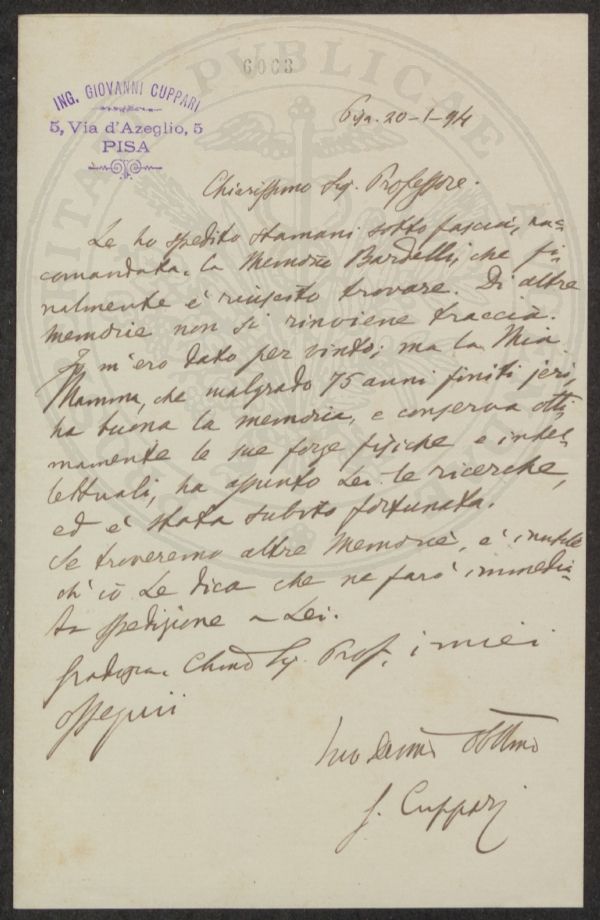 6003
ING. GIOVANNI CUPPARI
5, Via d'Azeglio, 5
PISA
PUBLICAE
Pisa. 20-1-94
Chiarissimo Sig. Professore.
Le ho spedito stamani sotto fascia, rac=
comandata, la Memoria Bardelli, che fi=
nalmente è riuscito trovare. Di altre
memorie non si rinviene traccia.
Io m'ero dato per vinto; ma la Mia
Mamma, che malgrado 75 anni finiti jeri,
ha buona la memoria, e conserva otti
mamente le sue forze fisiche e intel=
lettuali, ha assunto Lei le ricerche,
ed è stata subito fortunata.
Se troveremo altre Memorie, è inutile
ch'io Le dica che ne farò immedia=
ta spedizione a Lei.
Gradisca Chmo Sig. Prof. i miei
ossequii
Suo Devmo Obblmo
G. Cuppari